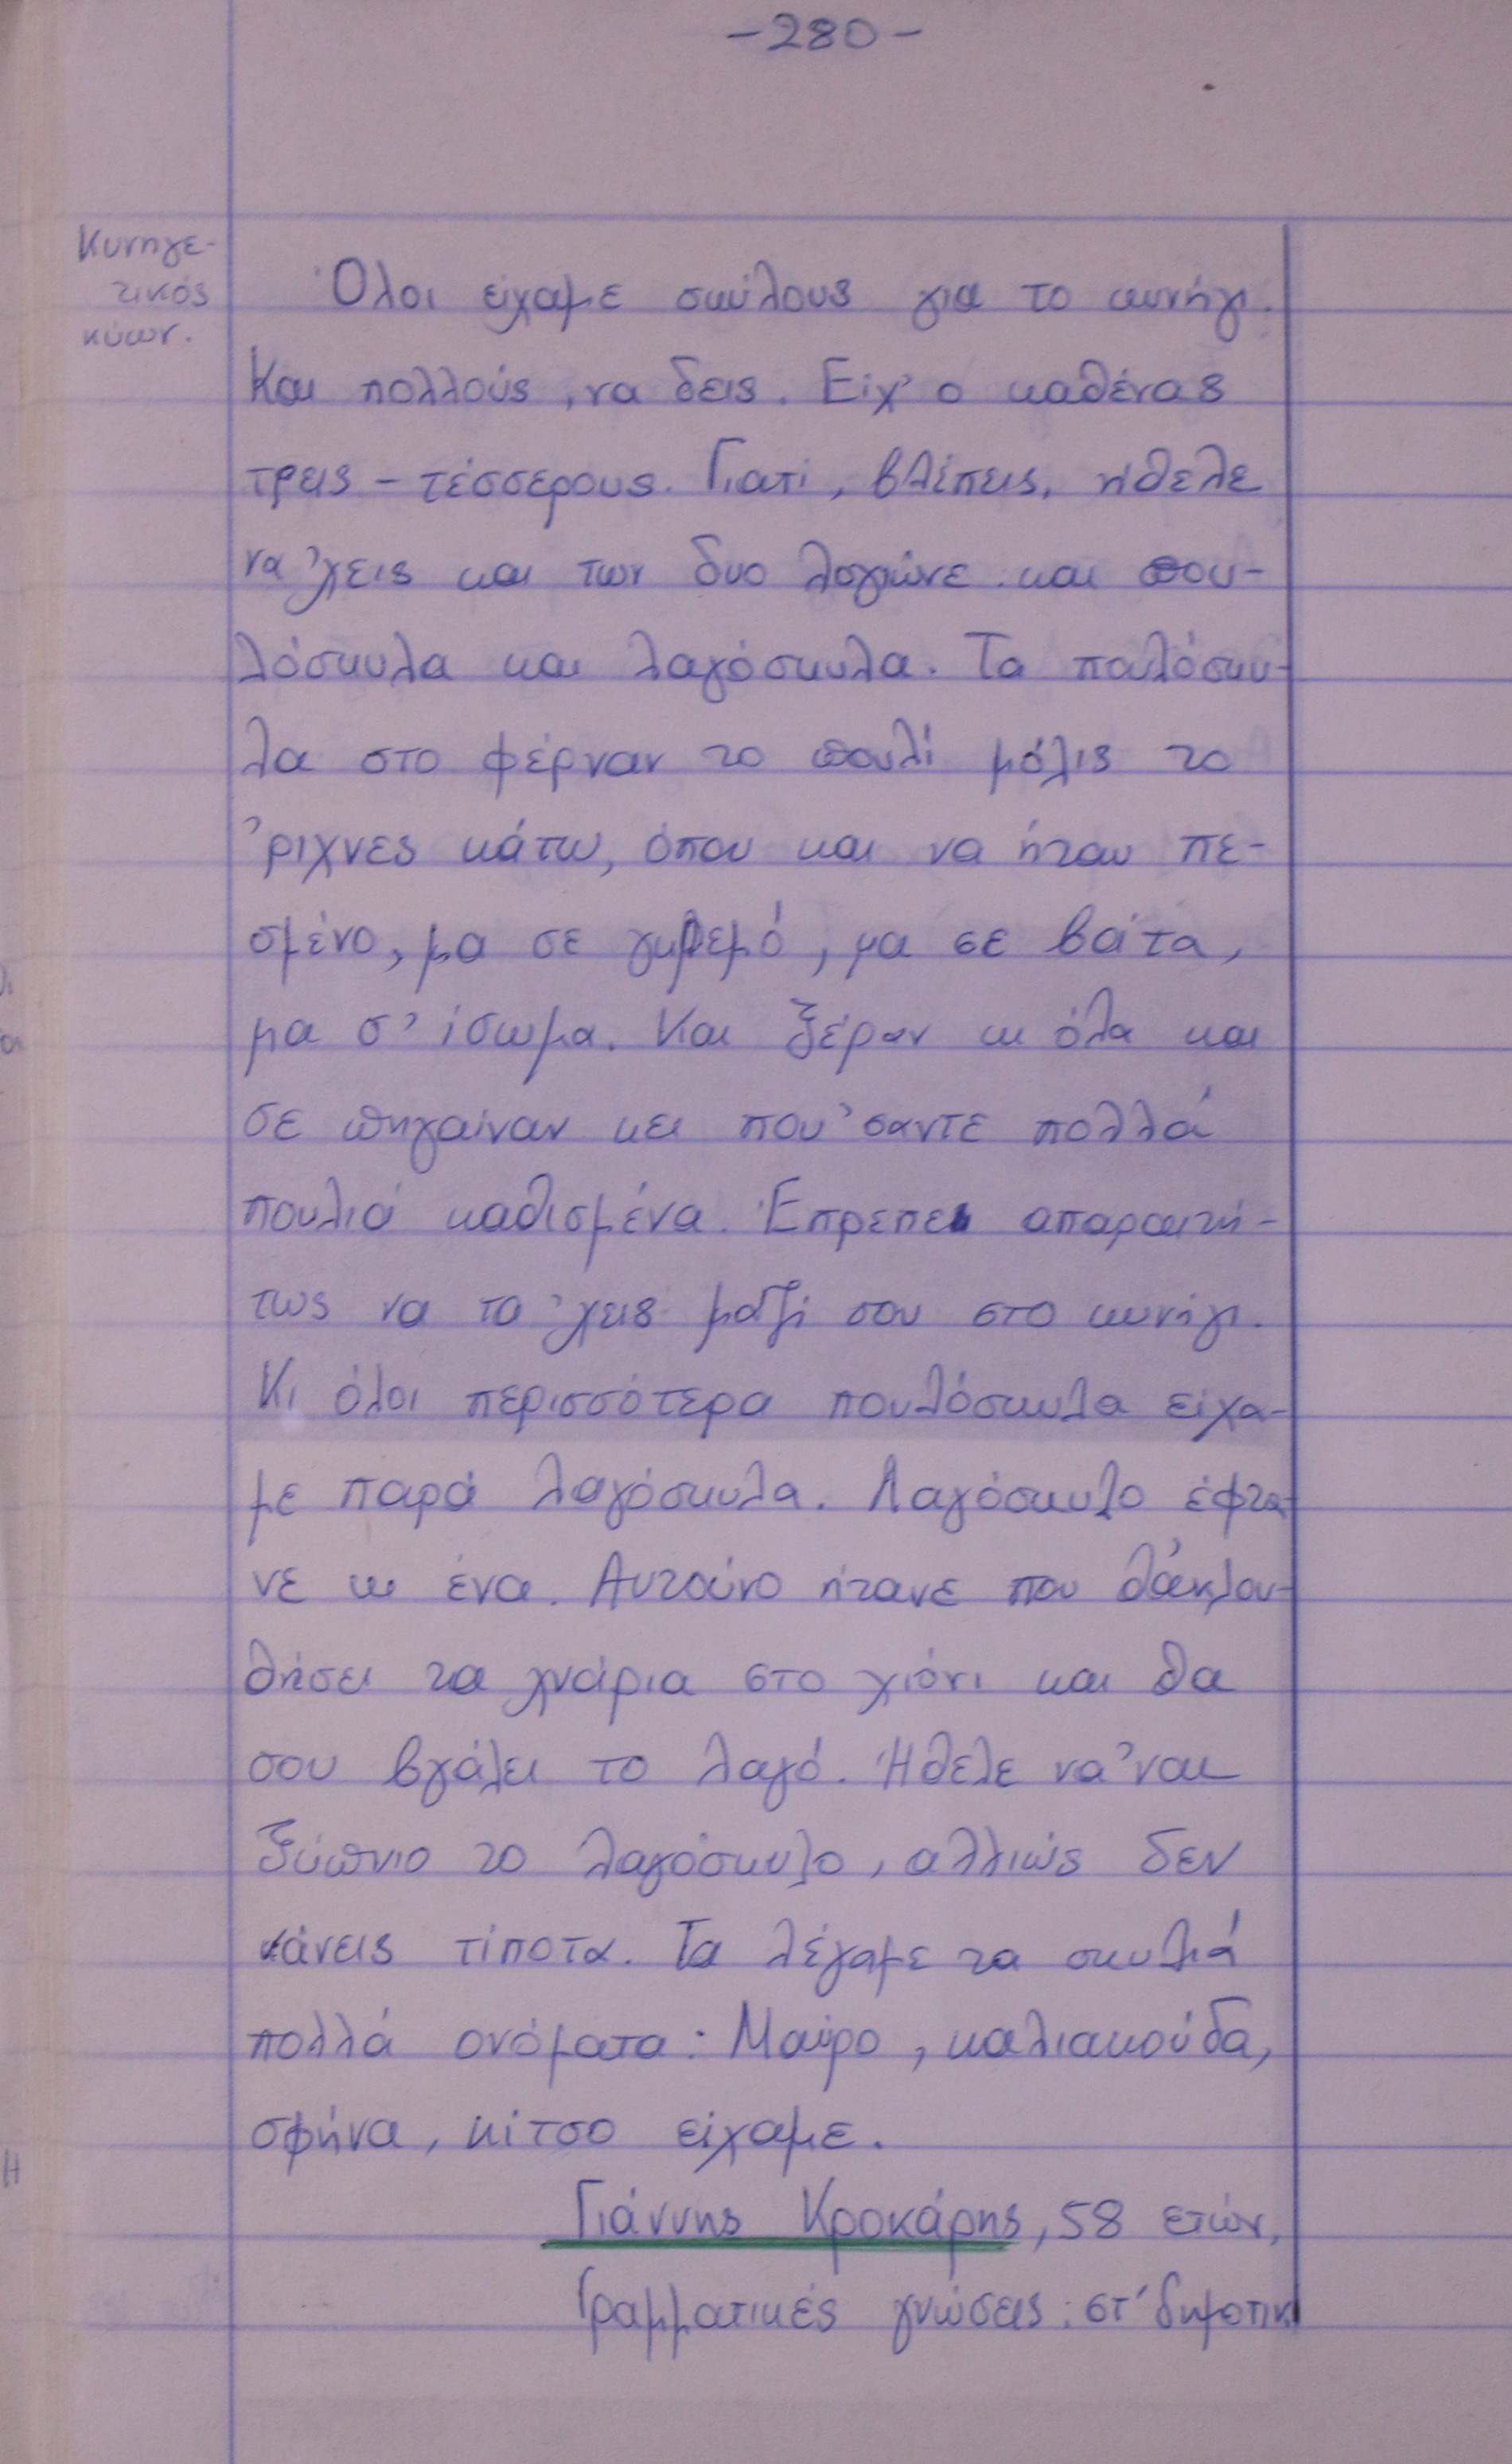 -280-
Κυνηγε-
τικός
κύων.
Όλοι είχαμε σκύλους για το κυνήγι.
Και πολλούς, να δεις. Είχ' ο καθένας
τρεις - τέσσερους. Γιατί, βλέπεις, ήθελε
να 'χεις και των δυο λογιώνε και που-
λόσκυλα και λαγόσκυλα. Τα πουλόσκυ-
λα στο φέρναν το πουλί μόλις το
'ριχνες κάτω, όπου και να ήταν πε-
σμένο, μα σε γκρεμό, μα σε βάτα,
μα σ' ίσωμα. Και ξέραν κι όλα και
σε πηγαίναν κει που 'σαντε πολλά
πουλιά καθισμένα. Έπρεπε απαραιτή-
τως να τα 'χεις μαζί σου στο κυνήγι.
Κι όλοι περισσότερα πουλόσκυλα είχα-
με παρά λαγόσκυλα. Λαγόσκυλο έφτα-
νε κι ένα. Αυτούνο ήτανε που θάκλου-
θήσει τα χνάρια στο χιόνι και θα
σου βγάλει το λαγό. Ήθελε να 'ναι
ξύπνιο το λαγόσκυλο, αλλιώς δεν
κάνεις τίποτα. Τα λέγαμε τα σκυλιά
πολλά ονόματα: Μαύρο, καλιακούδα,
σφήνα, κίτσο είχαμε.
Γιάννης Κροκάρης, 58 ετών,
Γραμματικές γνώσεις: στ' δημοτικ